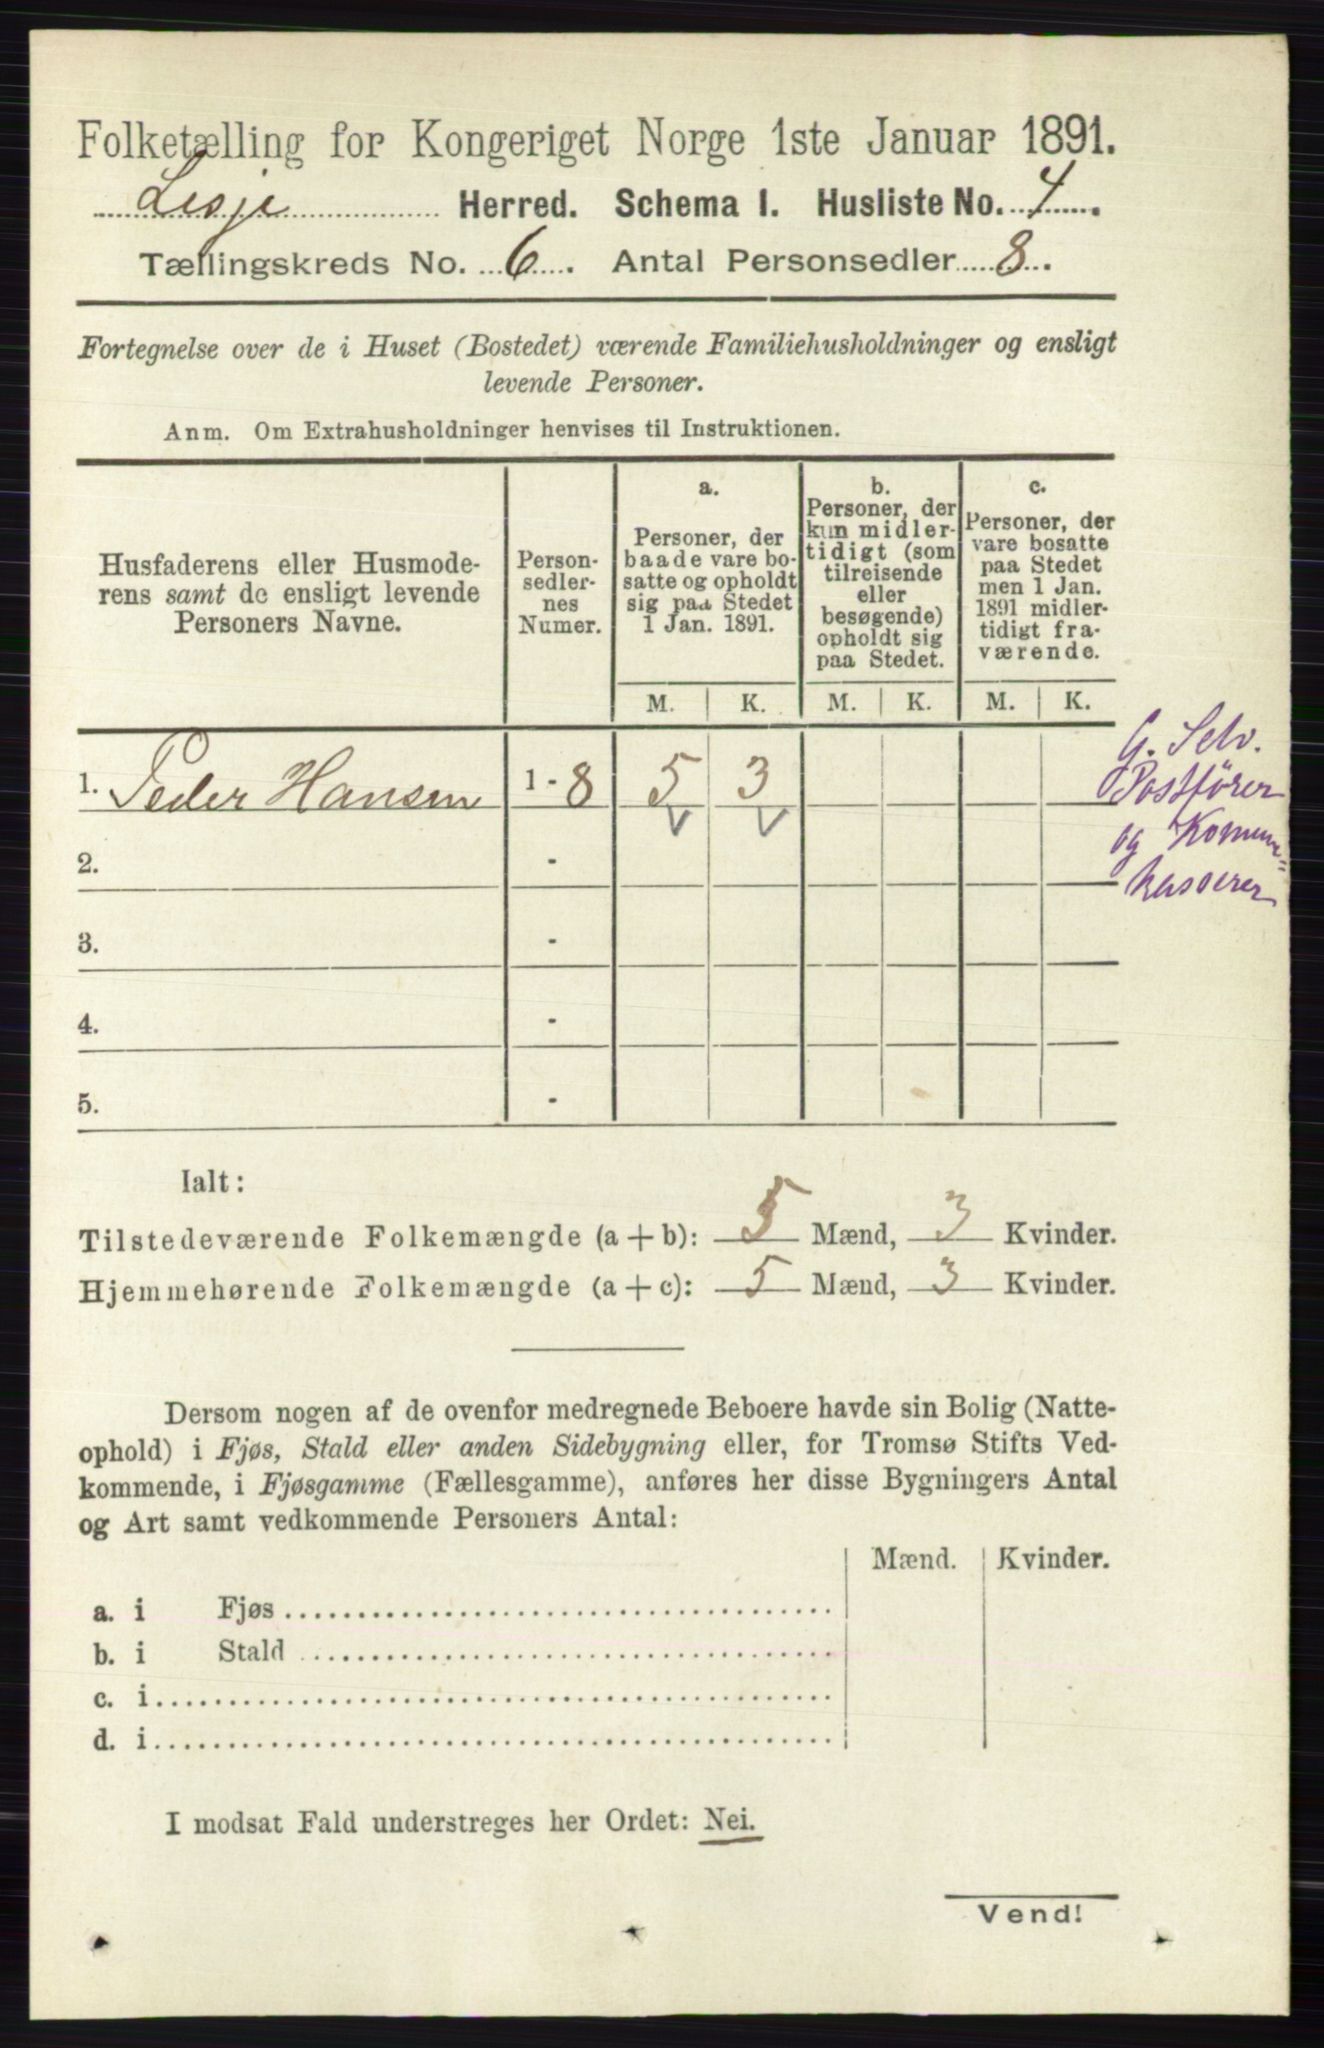 Folketælling for Kongeriget Norge 1ste Januar 1891.
Lesje Herred. Schema I. Husliste No. 4.
Tællingskreds No. 6. Antal Personsedler 8.
Fortegnelse over de i Huset (Bostedet) værende Familiehusholdninger og ensligt
levende Personer.
Anm. Om Extrahusholdninger henvises til Instruktionen.
Husfaderens eller Husmode-
rens samt de ensligt levende
Personers Navne.
Person-
sedler-
nes
Numer.
a.
Personer, der
baade vare bo-
satte og opholdt
sig paa Stedet
1 Jan. 1891.
b.
Personer, der
kun midler-
tidigt (som
tilreisende
eller
besøgende)
opholdt sig
paa Stedet.
c.
Personer, der
vare bosatte
paa Stedet
men 1 Jan.
1891 midler-
tidigt fra-
værende.
M. K. M. K. M. K.
1. Peder Hansen 1 - 8 5 3
G. Selv.
Postfører
og Komune=
kasserer
2. -
3. -
4. -
5. -
Ialt:
Tilstedeværende Folkemængde (a + b): 5 Mænd, 3 Kvinder.
Hjemmehørende Folkemængde (a + c): 5 Mænd, 3 Kvinder.
Dersom nogen af de ovenfor medregnede Beboere havde sin Bolig (Natte-
ophold) i Fjøs, Stald eller anden Sidebygning eller, for Tromsø Stifts Ved-
kommende, i Fjøsgamme (Fællesgamme), anføres her disse Bygningers Antal
og Art samt vedkommende Personers Antal:
Mænd. Kvinder.
a. i Fjøs
b. i Stald
c. i
d. i
I modsat Fald understreges her Ordet: Nei.
Vend!